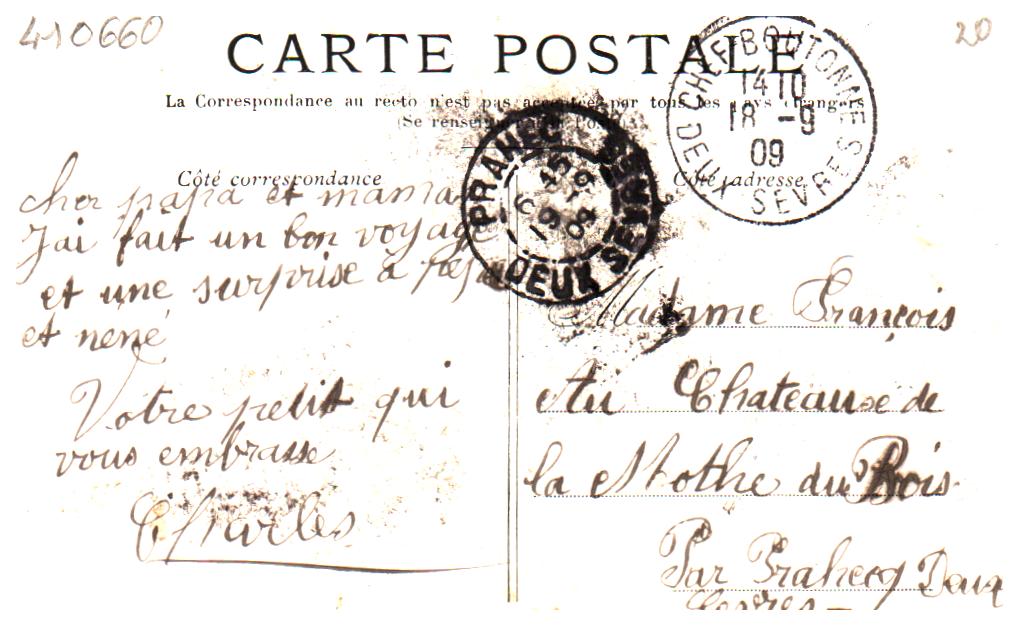 410660
20
CARTE POSTALE
La Correspondance au recto n'est pas acceptée par tous les pays étrangers
(Se renseigner à la Poste)
CHEF-BOUTONNE
14 10
18 -9
09
DEUX SÈVRES
PRAHECQ
6 45
19 -9
09
DEUX SEVRES
Côté correspondance
Côté adresse
cher papa et mama
J'ai fait un bon voyage
et une surprise à
et néné
Votre petit qui
vous embrasse
Charles
Madame François
Au Chateause de
la Mothe du Bois
Par Prahecq Deux
Sevres